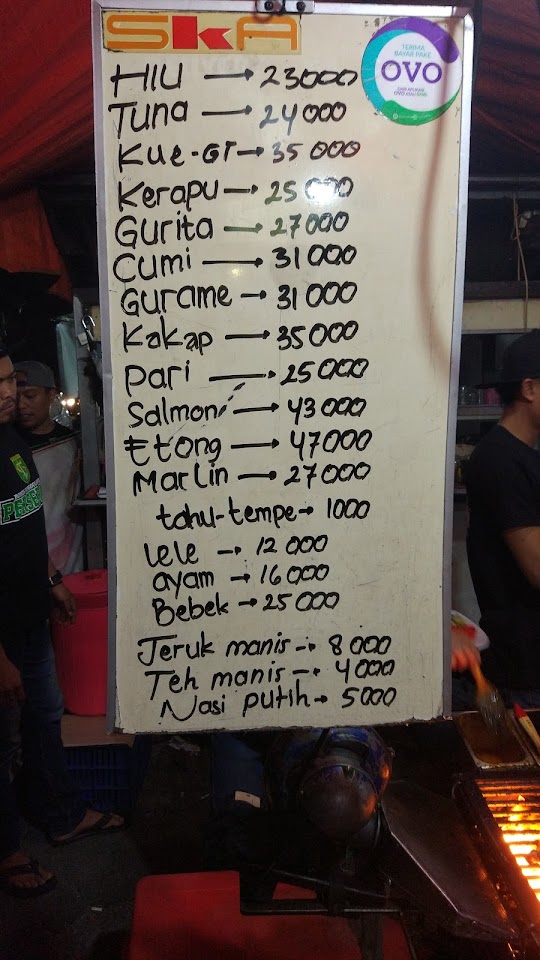 SkA
TERIMA
BAYAR PAKE
OVO
HIU → 23000
Tuna → 24000
Kue-GT → 35000
Kerapu → 25000
Gurita → 27000
Cumi → 31000
Gurame → 31000
Kakap → 35000
Pari → 25000
Salmon → 43000
Etong → 47000
Marlin → 27000
tahu-tempe → 1000
Lele → 12000
ayam → 16000
Bebek → 25000
Jeruk manis → 8000
Teh manis → 4000
Nasi putih → 5000